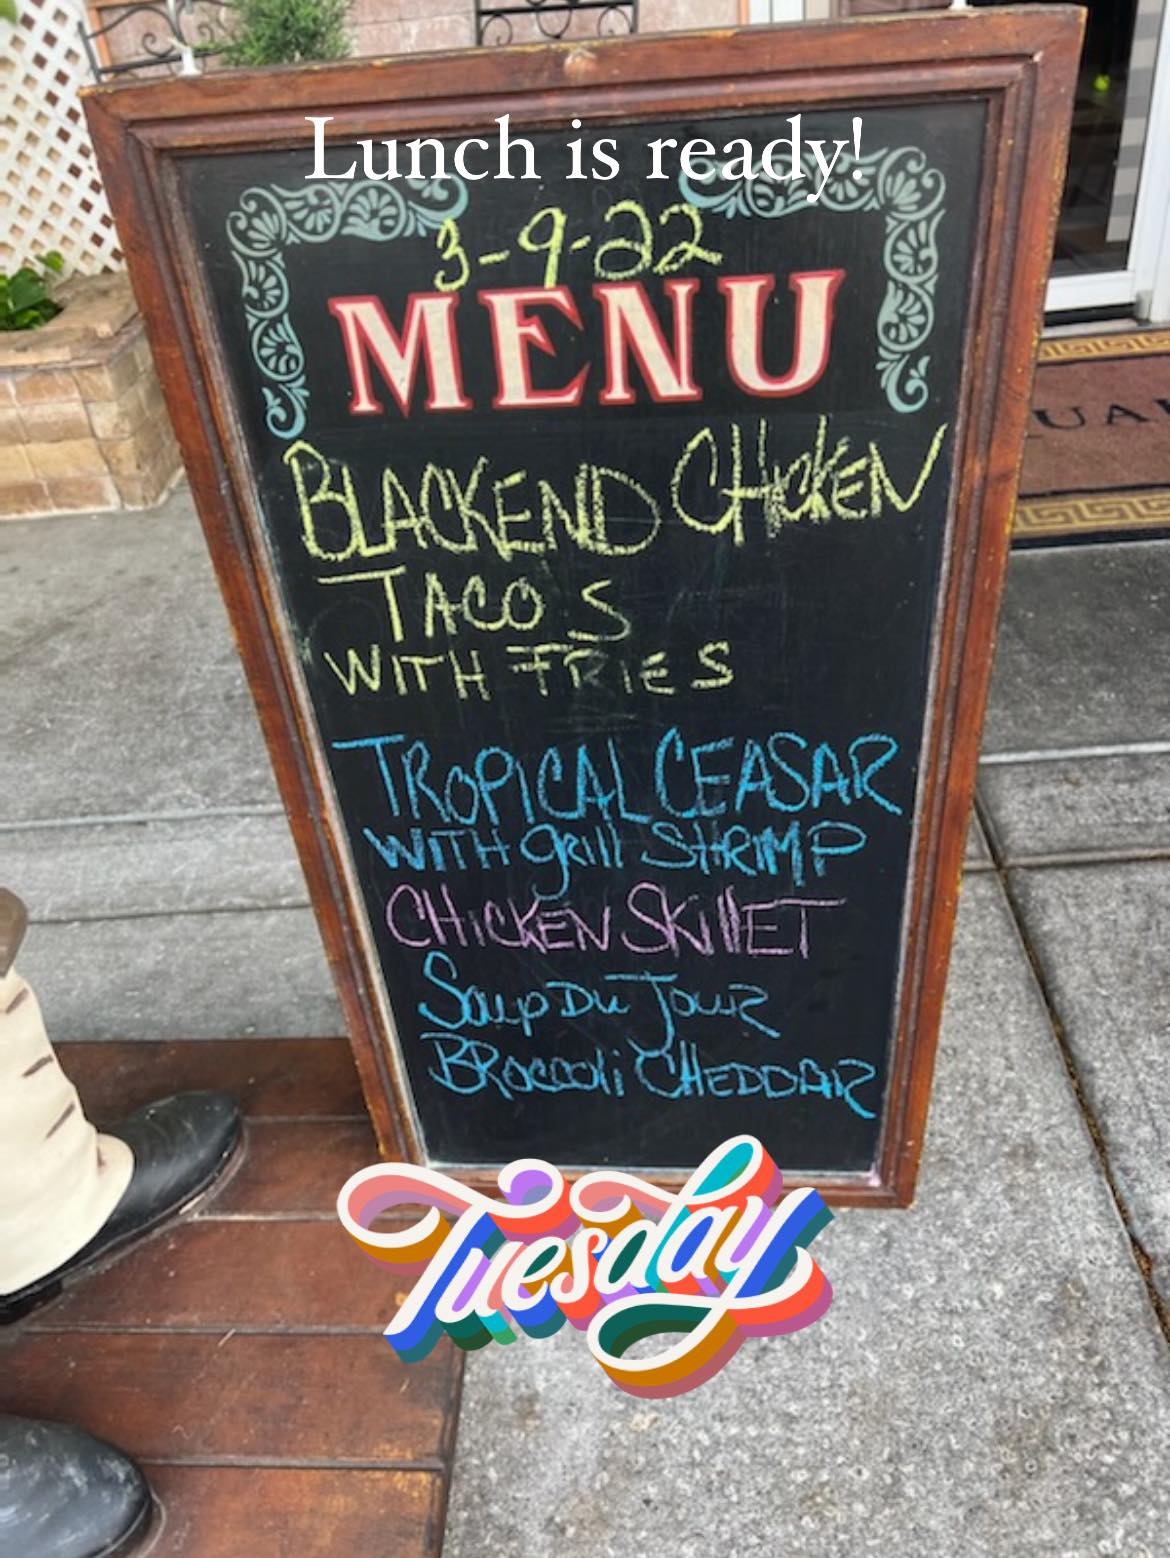 Lunch is ready!
3-9-22
MENU
BLACKEND CHICKEN
TACOS
WITH FRIES
TROPICAL CEASAR
WITH grill SHRIMP
CHICKEN SKILLET
Soup Du Jour
BROCCOLI CHEDDAR
Tuesday